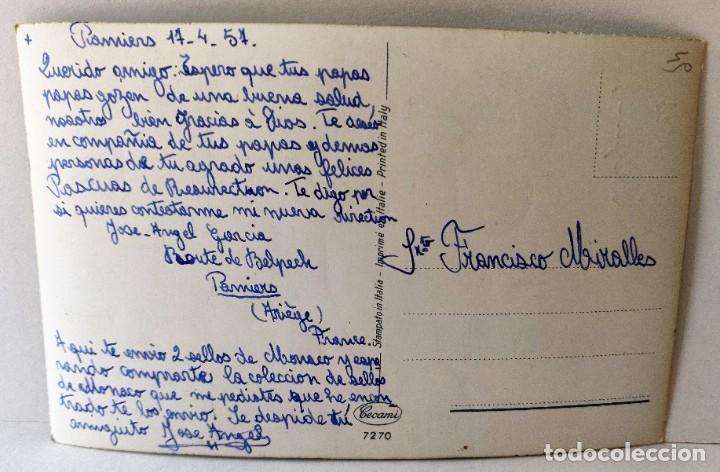 + Pamiers 17-4-57.
Querido amigo: Espero que tus papas
papas gozen de una buena salud,
nosotros bien gracias a Dios. Te deseo
en compañia de tus papas y demas
personas de tu agrado unas felices
Pascuas de Resurection. Te digo por
si quieres contestarme mi nueva direction
Jose-Angel Garcia
Route de Belpech
Pamiers
(Ariège)
France.
Aqui te envio 2 sellos de Monaco y espe
rando comprarte la coleccion de sellos
de Monaco que me pediates que he encon
trado te los envio. Se despide tú
amiguito Jose Angel
Stampato in Italia - Imprimé en Italie - Printed in Italy
Cecami
7270
Francisco Miralles
todocoleccion.net